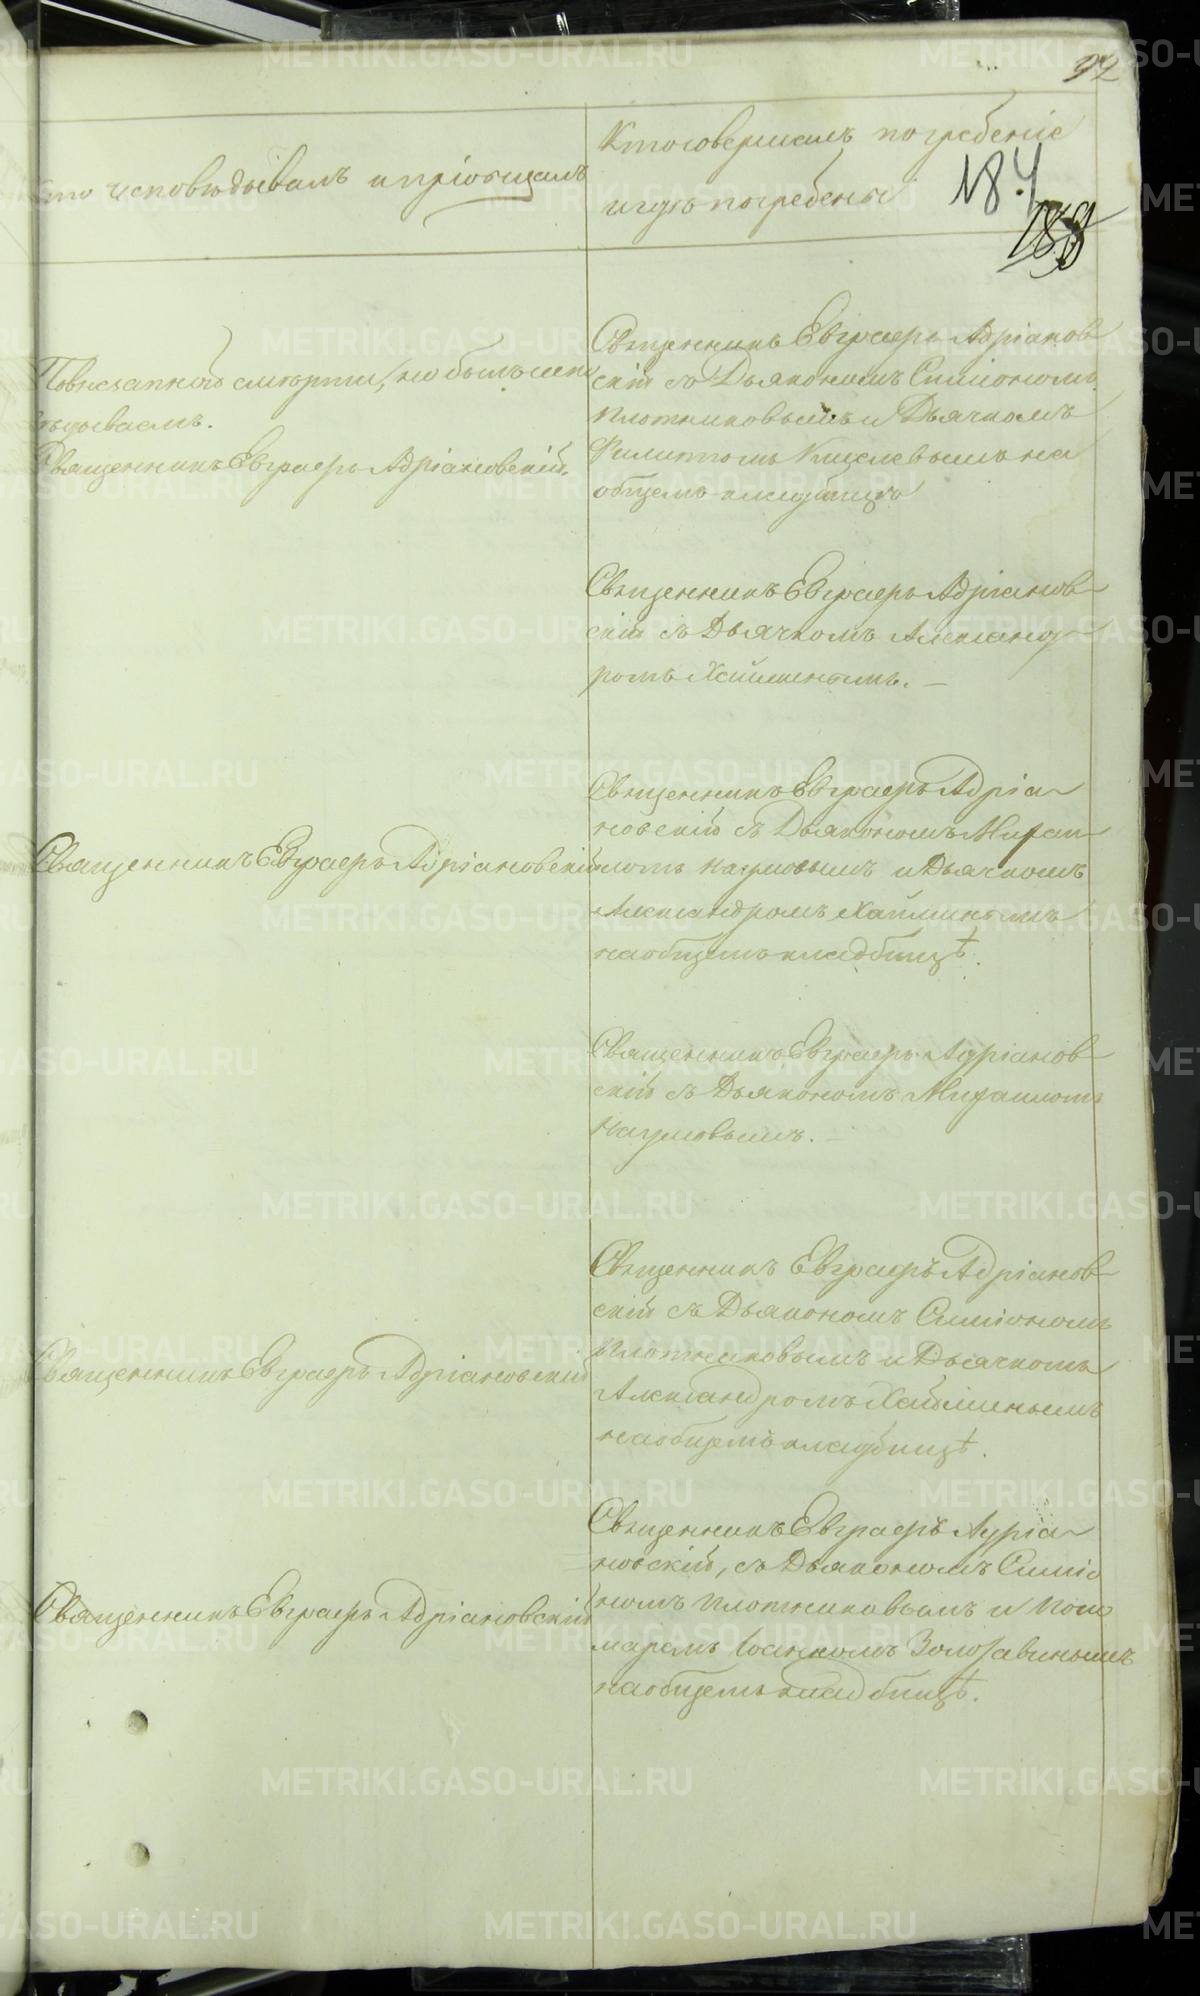 92
Кто исповѣдывалъ и пріобщалъ
Кто совершалъ погребеніе
и гдѣ погребены
184
188
По внезапной смерти, не былъ испо
вѣдываемъ.
Священникъ Евграфъ Адріановскій.
Священникъ Евграфъ Адріанов
скій съ Дьякономъ Симіономъ
Плотниковымъ и Дьячкомъ
Филиппомъ на
общемъ кладбищѣ
Священникъ Евграфъ Адріанов
скій съ Дьячкомъ Александ
ромъ Хайминымъ.
Священникъ Евграфъ Адріановскій
Священникъ Евграфъ Адріа
новскій съ Дьякономъ Михаи
ломъ Наумовымъ и Дьячкомъ
Александромъ Хайминымъ
на общемъ кладбищѣ.
Священникъ Евграфъ Адріанов
скій съ Дьякономъ Михаиломъ
Наумовымъ.
Священникъ Евграфъ Адріановскій
Священникъ Евграфъ Адріанов
скій съ Дьякономъ Симіономъ
Плотниковымъ и Дьячкомъ
Александромъ Хайминымъ
на общемъ кладбищѣ.
Священникъ Евграфъ Адріановскій
Священникъ Евграфъ Адріа
новскій, съ Дьякономъ Симіо
номъ Плотниковымъ и Поно
маремъ Іоанномъ
на общемъ кладбищѣ.
METRIKI.GASO-URAL.RU